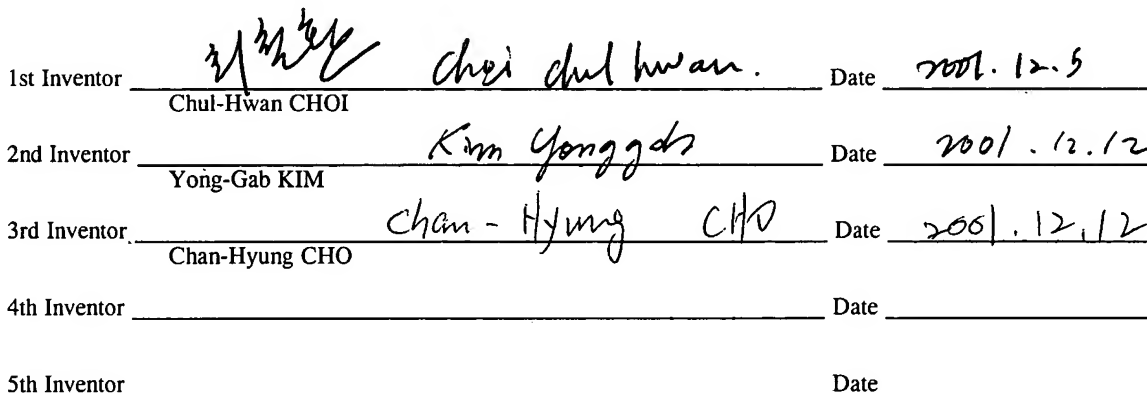 1st Inventor 최철환 choi chul hwan. Date 2001. 12. 5
Chul-Hwan CHOI
2nd Inventor Kim Yonggab Date 2001. 12. 12
Yong-Gab KIM
3rd Inventor Chan-Hyung CHO Date 2001. 12. 12
Chan-Hyung CHO
4th Inventor Date
5th Inventor Date